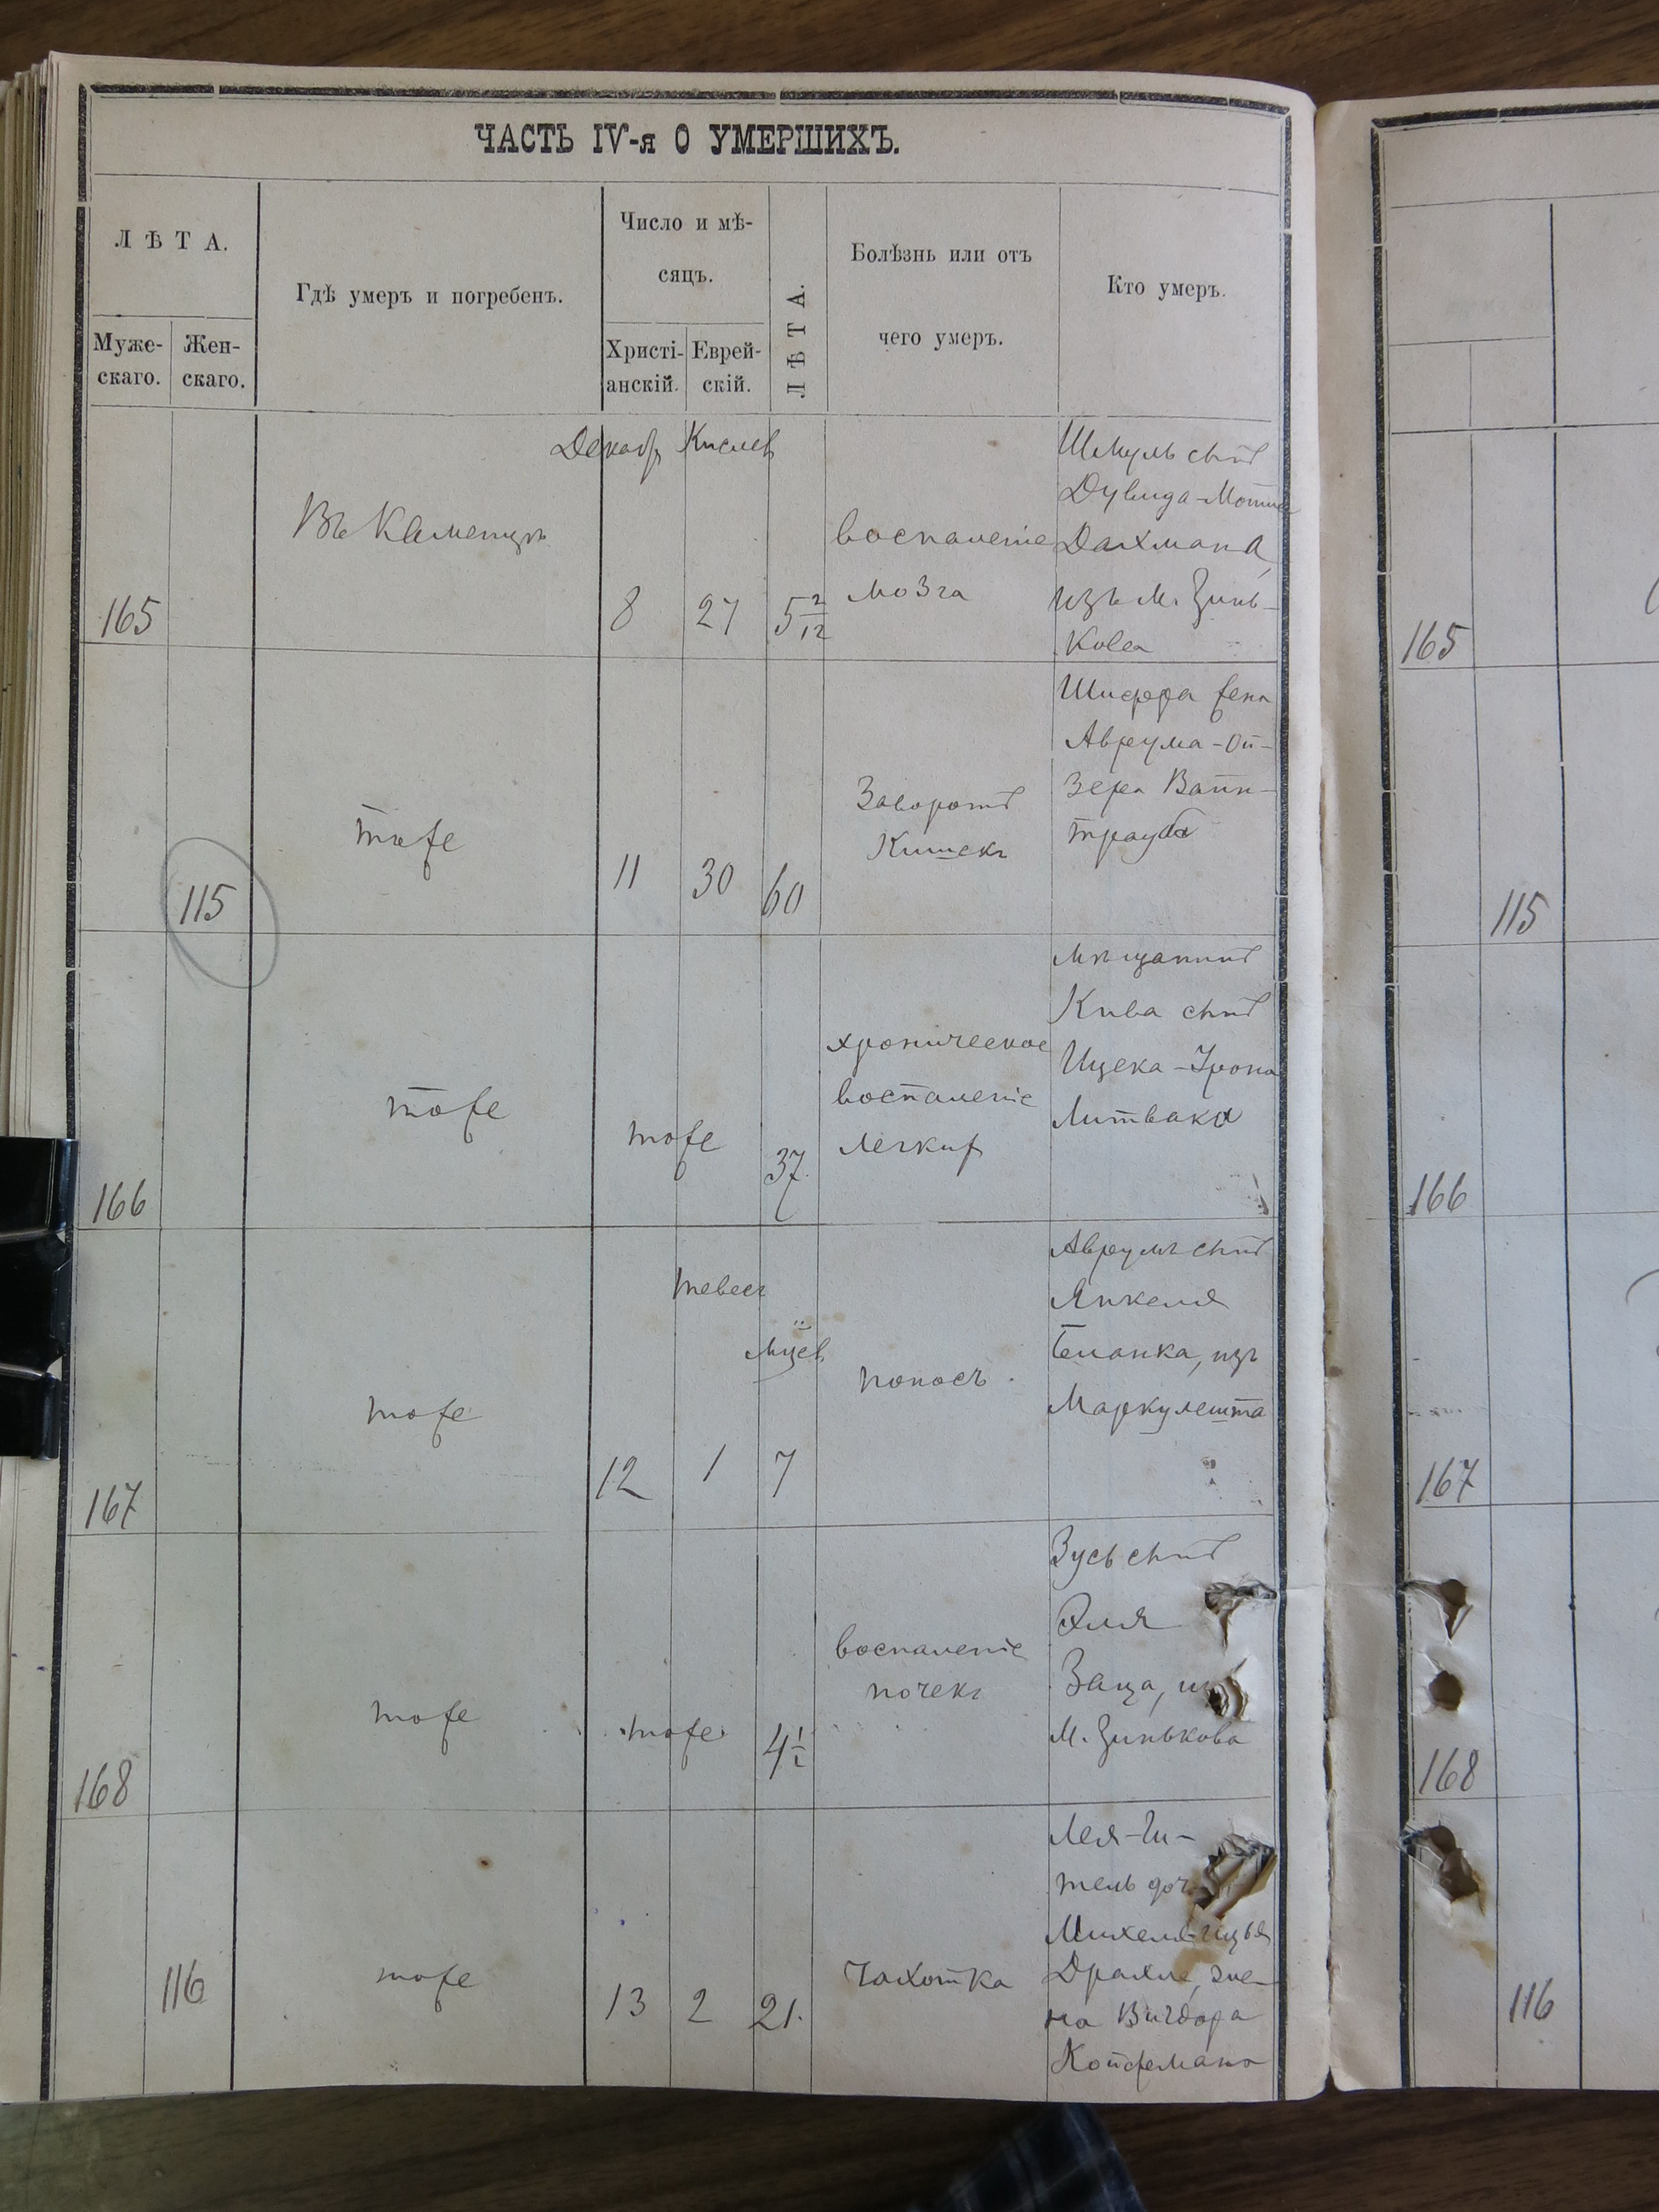 ЧАСТЬ IV-я О УМЕРШИХЪ.
ЛѢТА.
Муже-
скаго.
Жен-
скаго.
Гдѣ умеръ и погребенъ.
Число и мѣ-
сяцъ.
Христі-
анскій.
Еврей-
скій.
ЛѢТА.
Болѣзнь или отъ
чего умеръ.
Кто умеръ.
Декабр Кислев
165
Въ Каменцѣ
8
27
5 2/12
воспаленіе
мозга
Шмуль сынъ
Дувида-Мотия
Дахмана,
изъ м. Зинь-
кова
165
115
тоже
11
30
60
Заворотъ
Кишекъ
Шифра жена
Авреума-Ой-
зера Вайн-
трауба
115
166
тоже
тоже
37
хроническое
воспаленіе
легких
мѣщанинъ
Кива сынъ
Ицека-
Литвака
166
167
тоже
Тевесъ
12
1
мцев
7
поносъ
Авреумъ сынъ
Янкеля
Бланка, изъ
Маркулешта
167
168
тоже
тоже
4½
воспаленіе
почекъ
Зусь сынъ
Эля
Заца,
м. Зинькова
168
116
тоже
13
2
21.
Чахотка
Лея-Ги-
тель доч
Михеля-
же-
на Вигдора
Койфмана
116